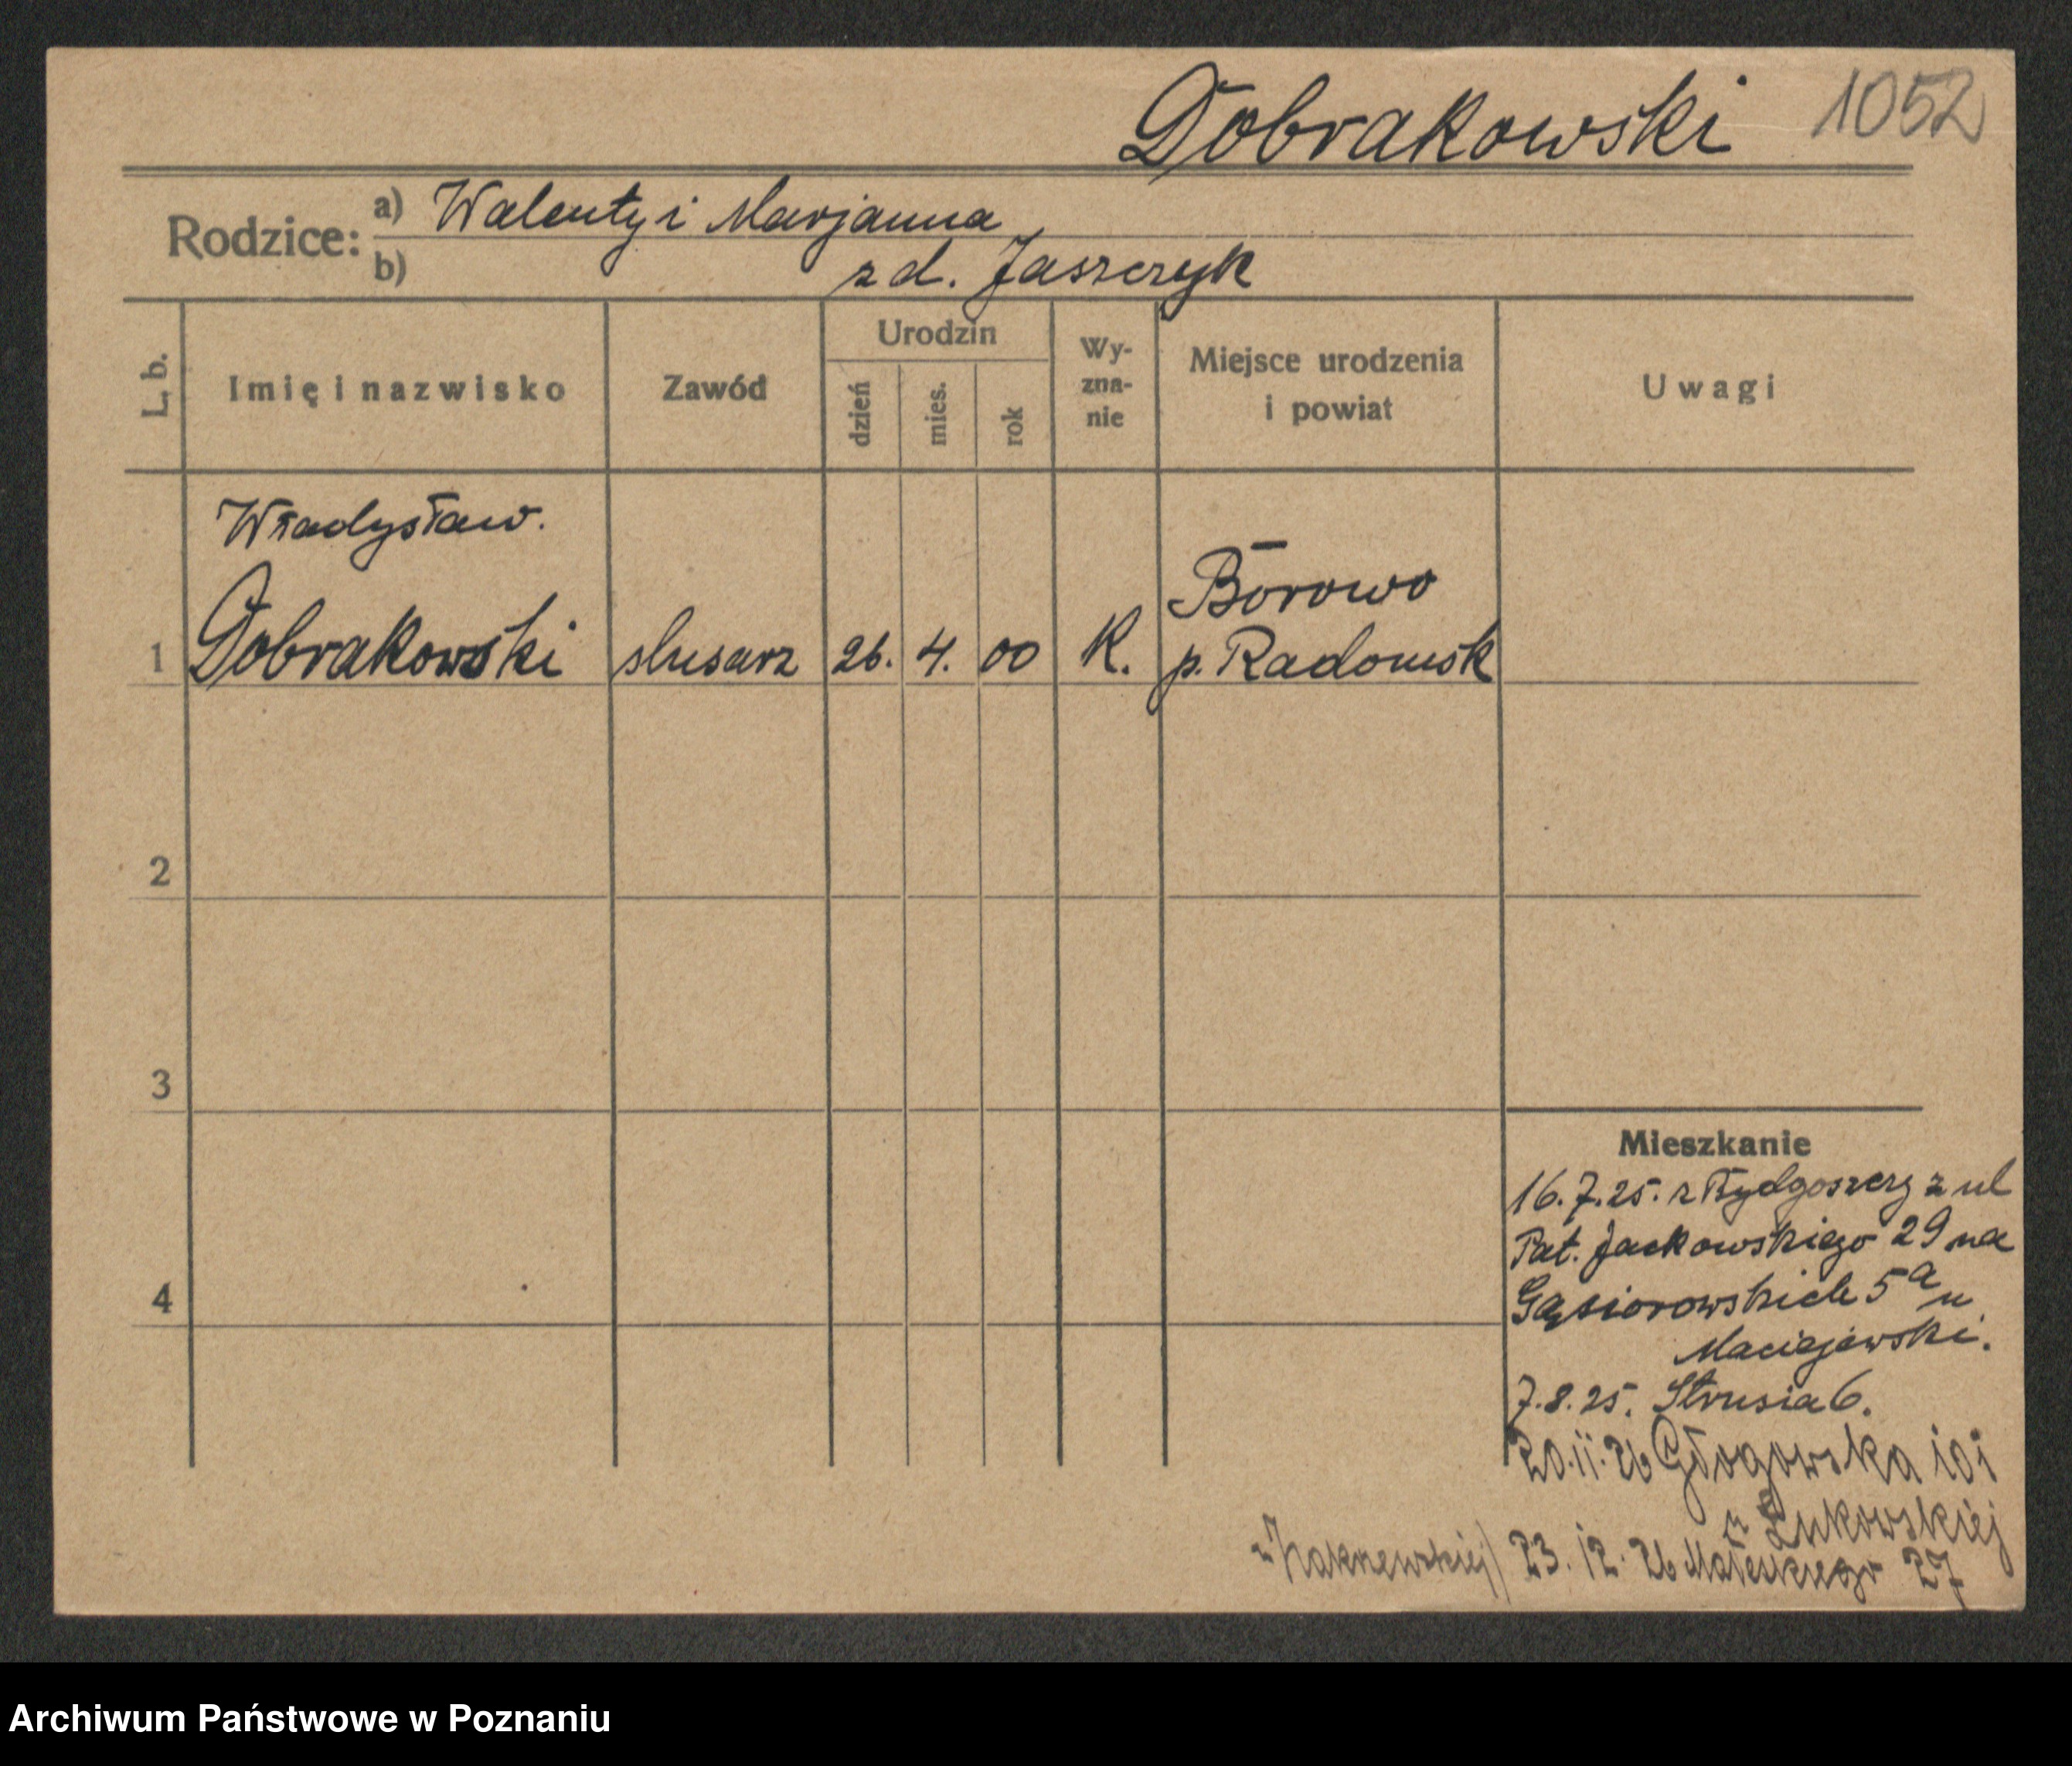 Dobrakowski 1052
Rodzice: a) Walenty i Marjanna
b) z d. Jaszczyk
L. b. Imię i nazwisko Zawód Urodzin dzień mies. rok Wy- zna- nie Miejsce urodzenia i powiat Uwagi
Władysław.
Borowo
1 Dobrakowski slusarz 26. 4. 00 K. p. Radomsk
2
3
4
Mieszkanie
16.7.25. z Bydgoszczy z ul
Pat. Jackowskiego 29 na
Gąsiorowskich 5a u
Maciejewski.
7.8.25. Strusia 6.
20.11.26 Głogowska 101
u Żukowskiej
23.12.26 27
Archiwum Państwowe w Poznaniu